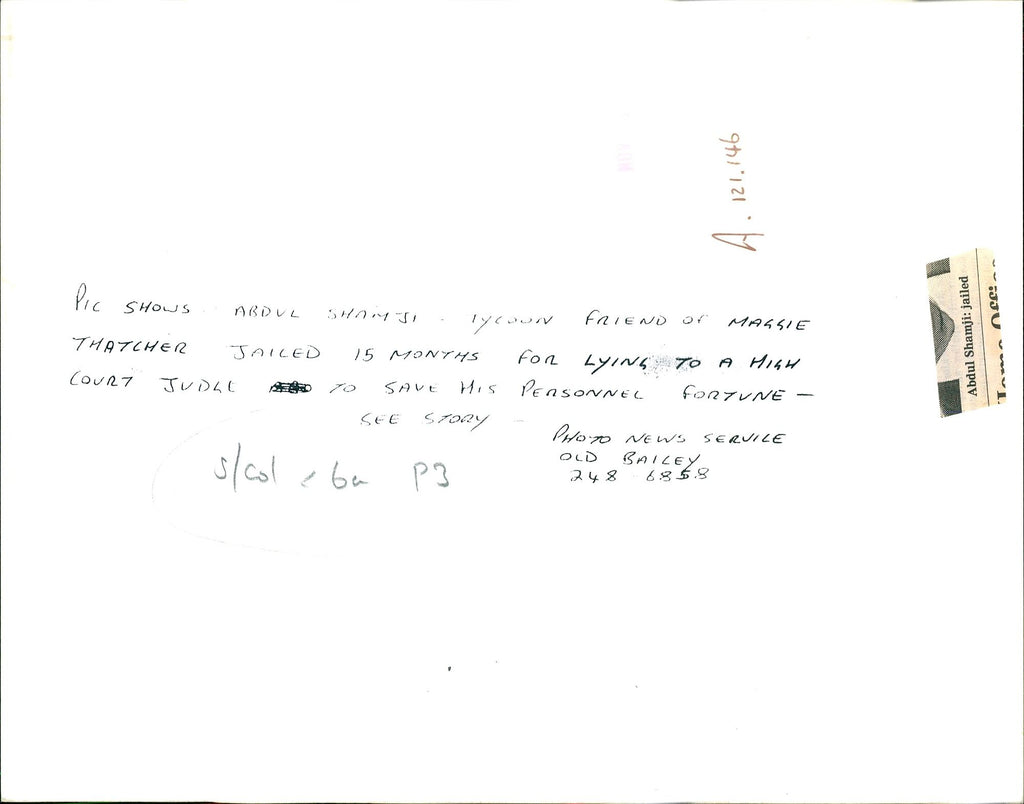 A. 121.146
PIC SHOWS ABDUL SHAMJI - TYCOON FRIEND OF MAGGIE
THATCHER JAILED 15 MONTHS FOR LYING TO A HIGH
COURT JUDGE TO SAVE HIS PERSONNEL FORTUNE —
SEE STORY -
PHOTO NEWS SERVICE
OLD BAILEY
248 6858
S/Col P3
Abdul Shamji: jailed
Home Office